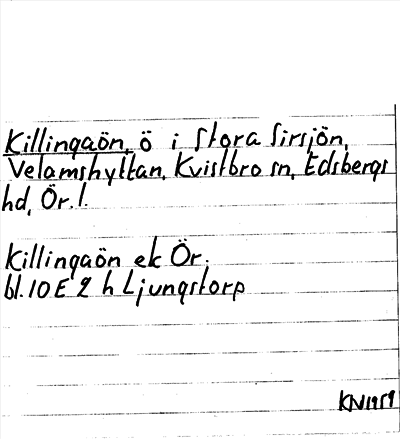 Killingaön, ö i Stora Sirsjön,
Velamshyttan, Kvistbro sn, Edsbergs
hd, Ör. l.
Killingaön ek Ör.
bl. 10 E 2 h Ljungstorp
KN1959